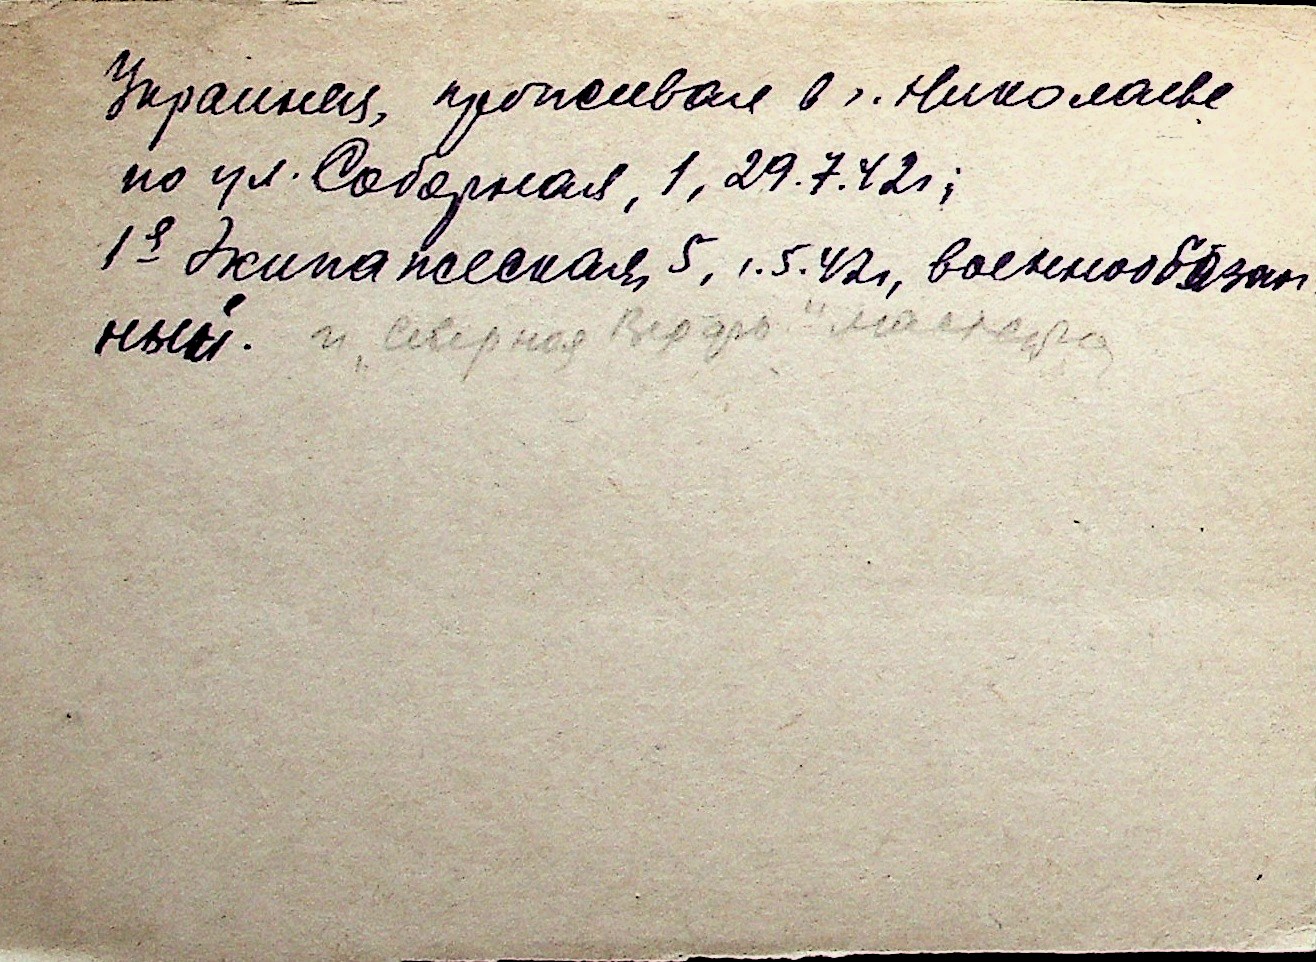 Украинец, проживал в г. Николаеве
по ул. Соборная, 1, 29.7.42г;
1я Экипажеская, 5, 1.5.42г, военнообязан
ный. п "Северная Верфь" мастера